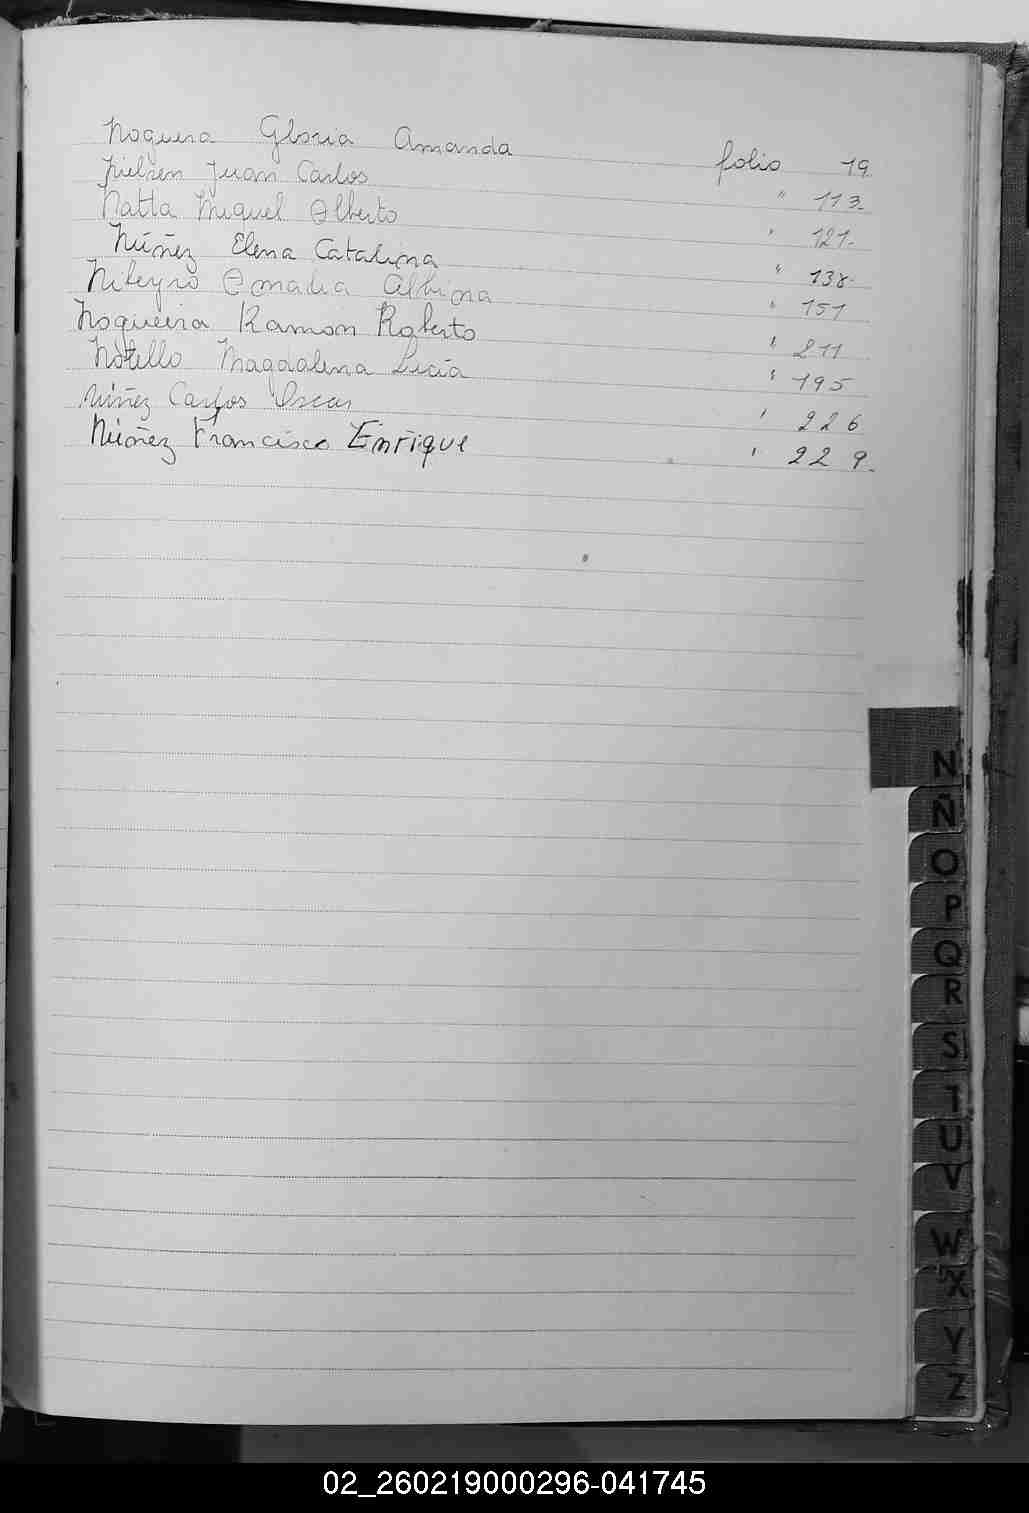 Noguera Gloria Amanda folio 19
Nielsen Juan Carlos " 113.
Natta Miguel Alberto " 121.
Núñez Elena Catalina " 138.
Niteyro Amalia Albina " 151
Nogueira Ramón Roberto " 211
Notello Magdalena Lucía " 195
Núñez Carlos Oscar " 226
Núñez Francisco Enrique " 229.
N
Ñ
O
P
Q
R
S
T
U
V
W
X
Y
Z
02_260219000296-041745